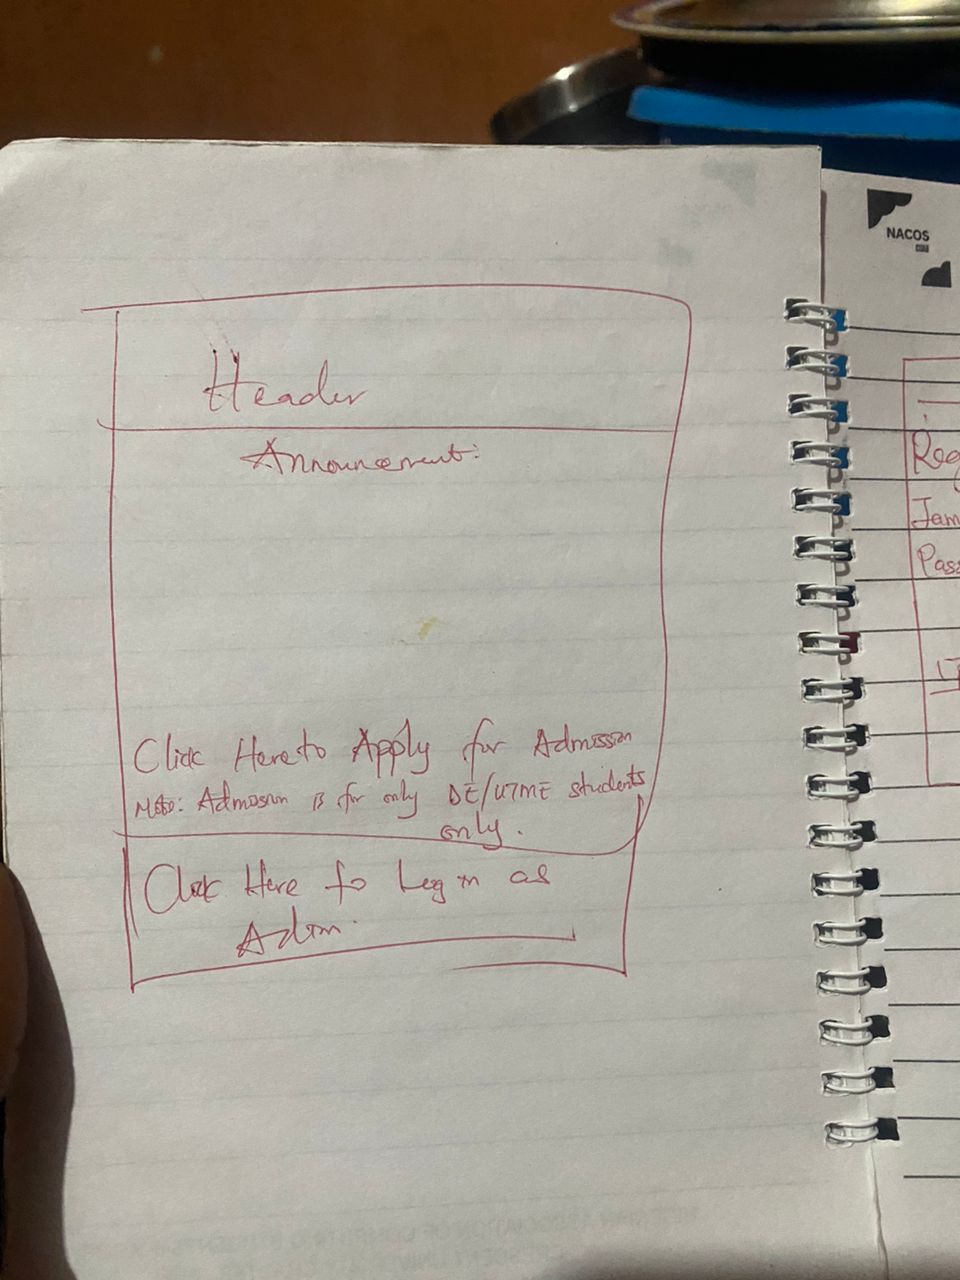 Header
Announcement:
Click Here to Apply for Admission
Note: Admission is for only DE/UTME students
only.
Click Here to Log in as
Admin.
NACOS
Reg
Jam
Pass